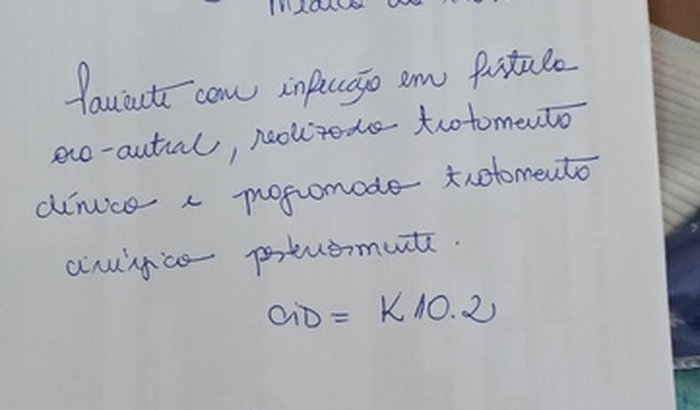 Paciente com infecção em fístula
oro-antral, realizado tratamento
clínico e programado tratamento
cirúrgico posteriormente.
CID = K10.2